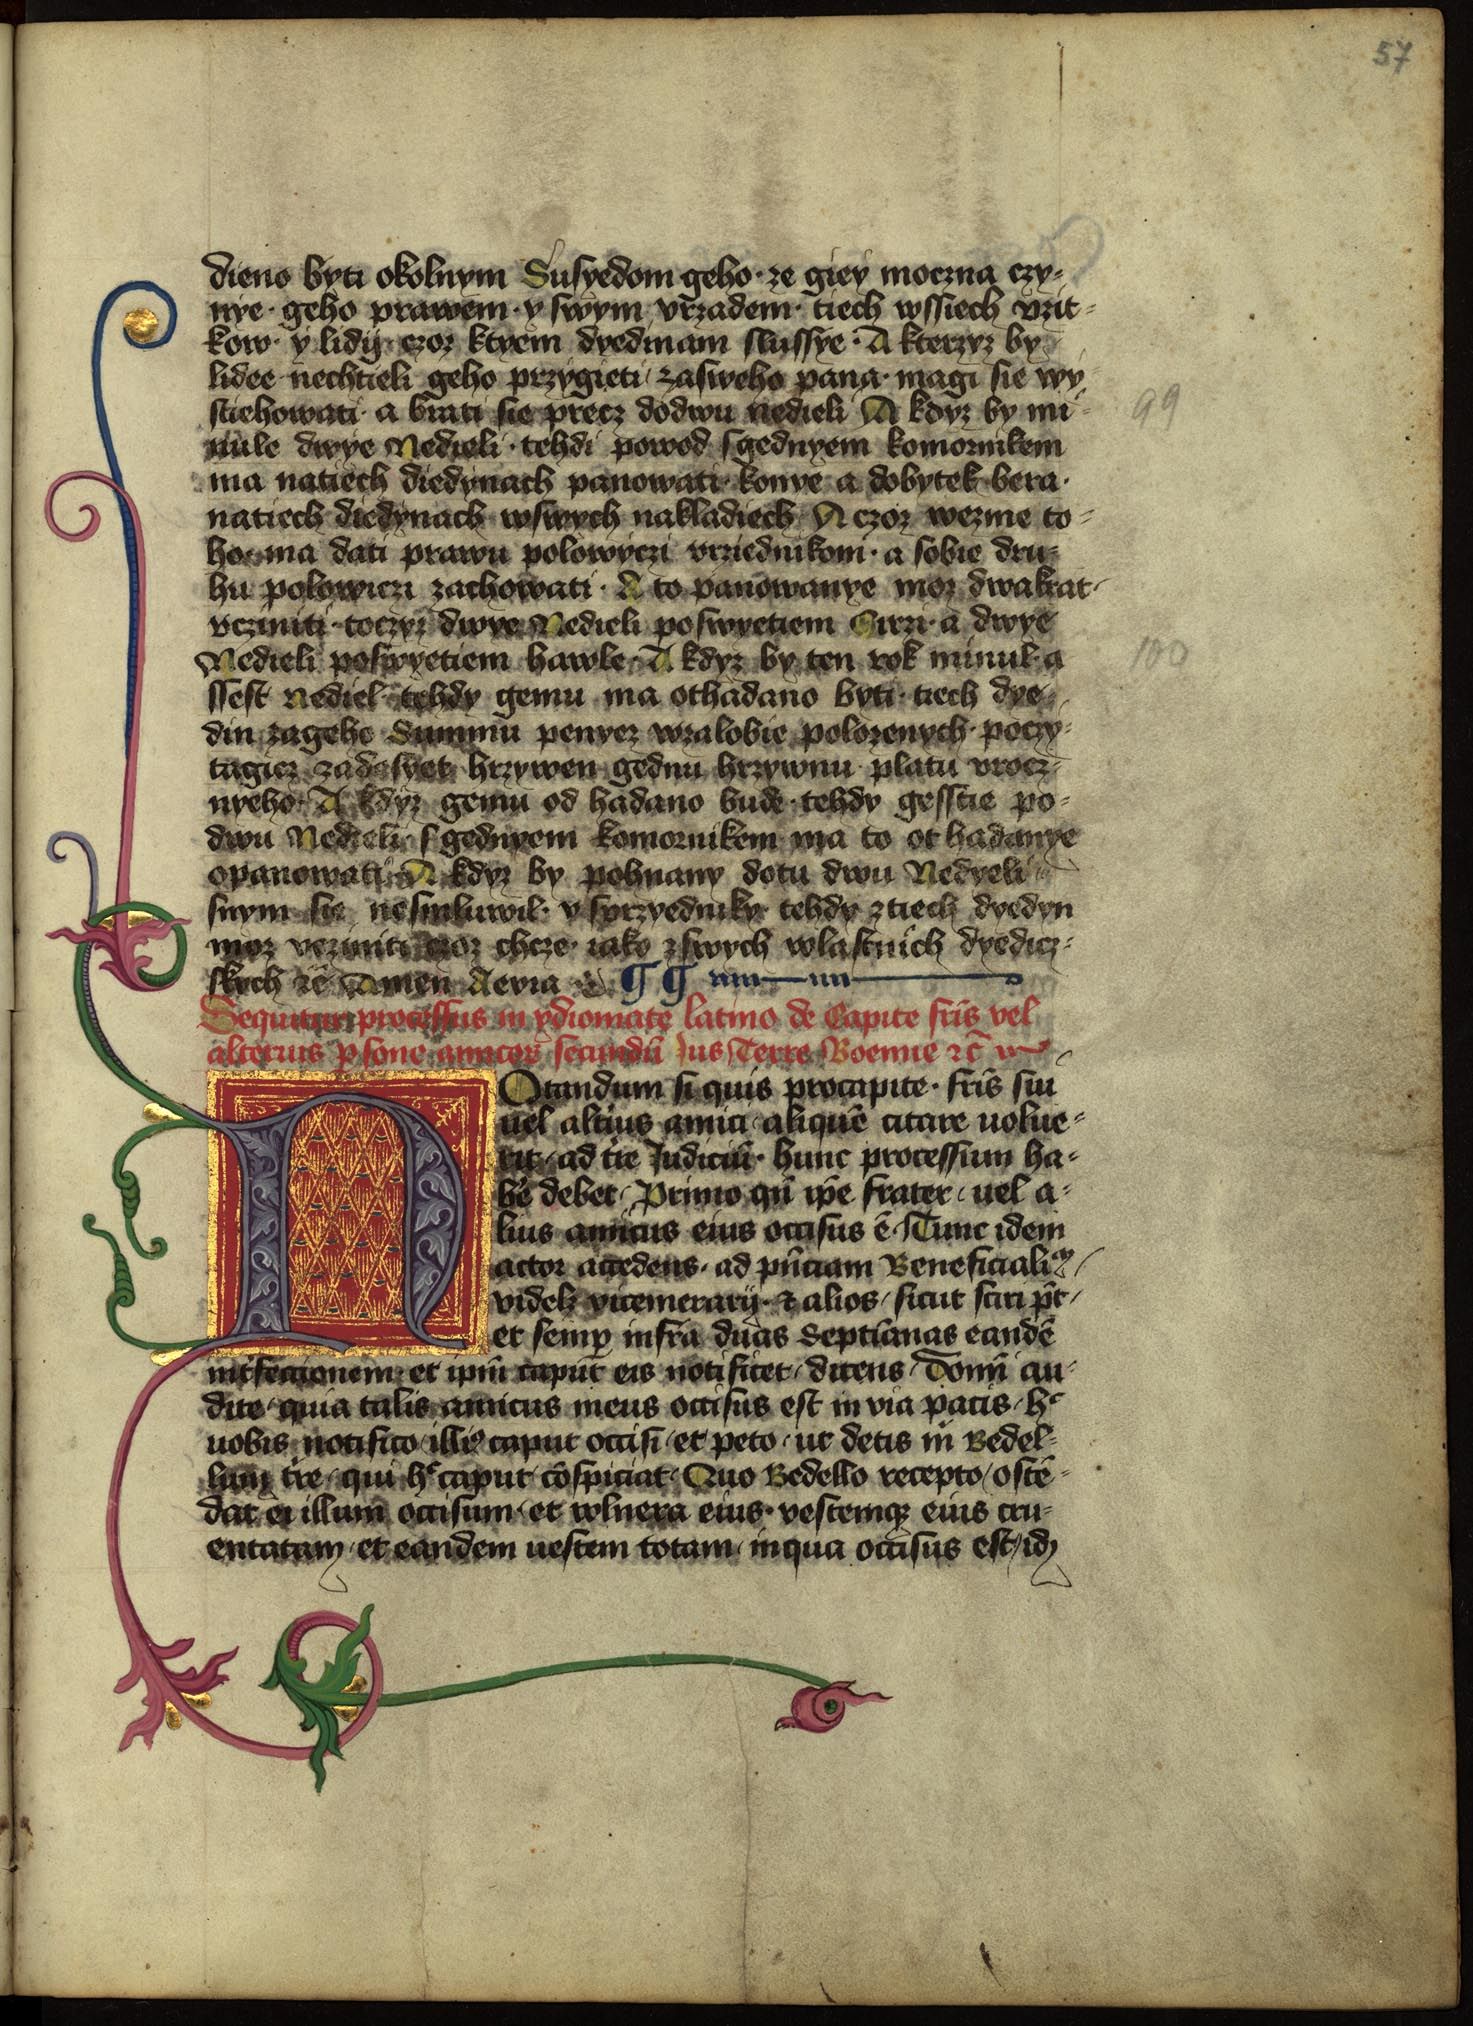 57
dieno byti okolnym Susyedom geho · ze giey moczna czy-
nye · geho prawem · y swym vrzadem · tiech wssiech vzit-
kow · y lidij · czoz ktyem dyedinam slussye · A kterzyz by
lidee nechtieli geho przygieti / zasweho pana · magi sie wy-
stiehowati · a brati sie precz dodwu nedieli A kdyz by mi-
nule dwye Nedieli · tehdi powod s gednyem komornikem
ma natiech diedynach panowati · konye a dobytek bera ·
natiech diedynach wswych nakladiech A czoz wezme to-
ho · ma dati prawu polowiczi vrziednikom · a sobie dru-
hu polowiczi zachowati · A to panowanye moz dwakrat
vcziniti · toczyz dwye Nedieli poswyetiem Girzi · a dwye
Nedieli poswyetiem hawle · A kdyz by ten rok minul · a
ssest nediel · tehdy gemu ma othadano byti · tiech dye-
din zageho Summu penyez wzalobie polozenych · poczy-
tagicz zadesyet hrzywen gednu hrzywnu platu wrocz-
nyeho · A kdyz gemu od hadano bude · tehdy gesstie po-
dwu Nedieli · s gednyem komornikem ma to ot hadanye
opanowati · A kdyz by pohnany dotu dwu Nedyeli
snym sie nesmluwil · y syrzyedniky tehdy ztiech dyedyn
moz vcziniti czoz chcze · iako zswych wlastnich dyedicz-
skych &c̄ Amen
99
100
Sequitur processus in ydiomate latino de Capite fr̄is vel
alterius p̱sone amicor̄ secundū Jus Terre Boemie &c̄
NOtandum si quis procapite · fr̄is sui
uel alt̄ius amici aliquē citare uolue-
rit · ad t̄re Judiciū · hunc processum ha-
b̄e debet · Primo qn̄ ip̄e frater / uel a-
lius amicus eius occisus ē · Tunc idem
actor accedens · ad pn̄ciam Beneficialiū /
videlꝫ vicemerarij · & alios / sicut sciri p̄t /
et semp̱ infra duas Septīanas eandē
int̄fectionem · et ipm̄ caput eis notificet / dicens / Domī au-
dite · quia talis amicus meus occisus est in via pacis · hͨ
uobis notifico illi⁹ caput occisi / et peto / ut detis m̄ Bedel-
lum t̄re · qui hͨ caput cōspiciat · Quo Bedello recepto / ostē-
dat ei illum occisum · et wlnera eius · vestemqꝫ eius cru-
entatam / et eandem uestem totam / inqua occisus est / idꝫ